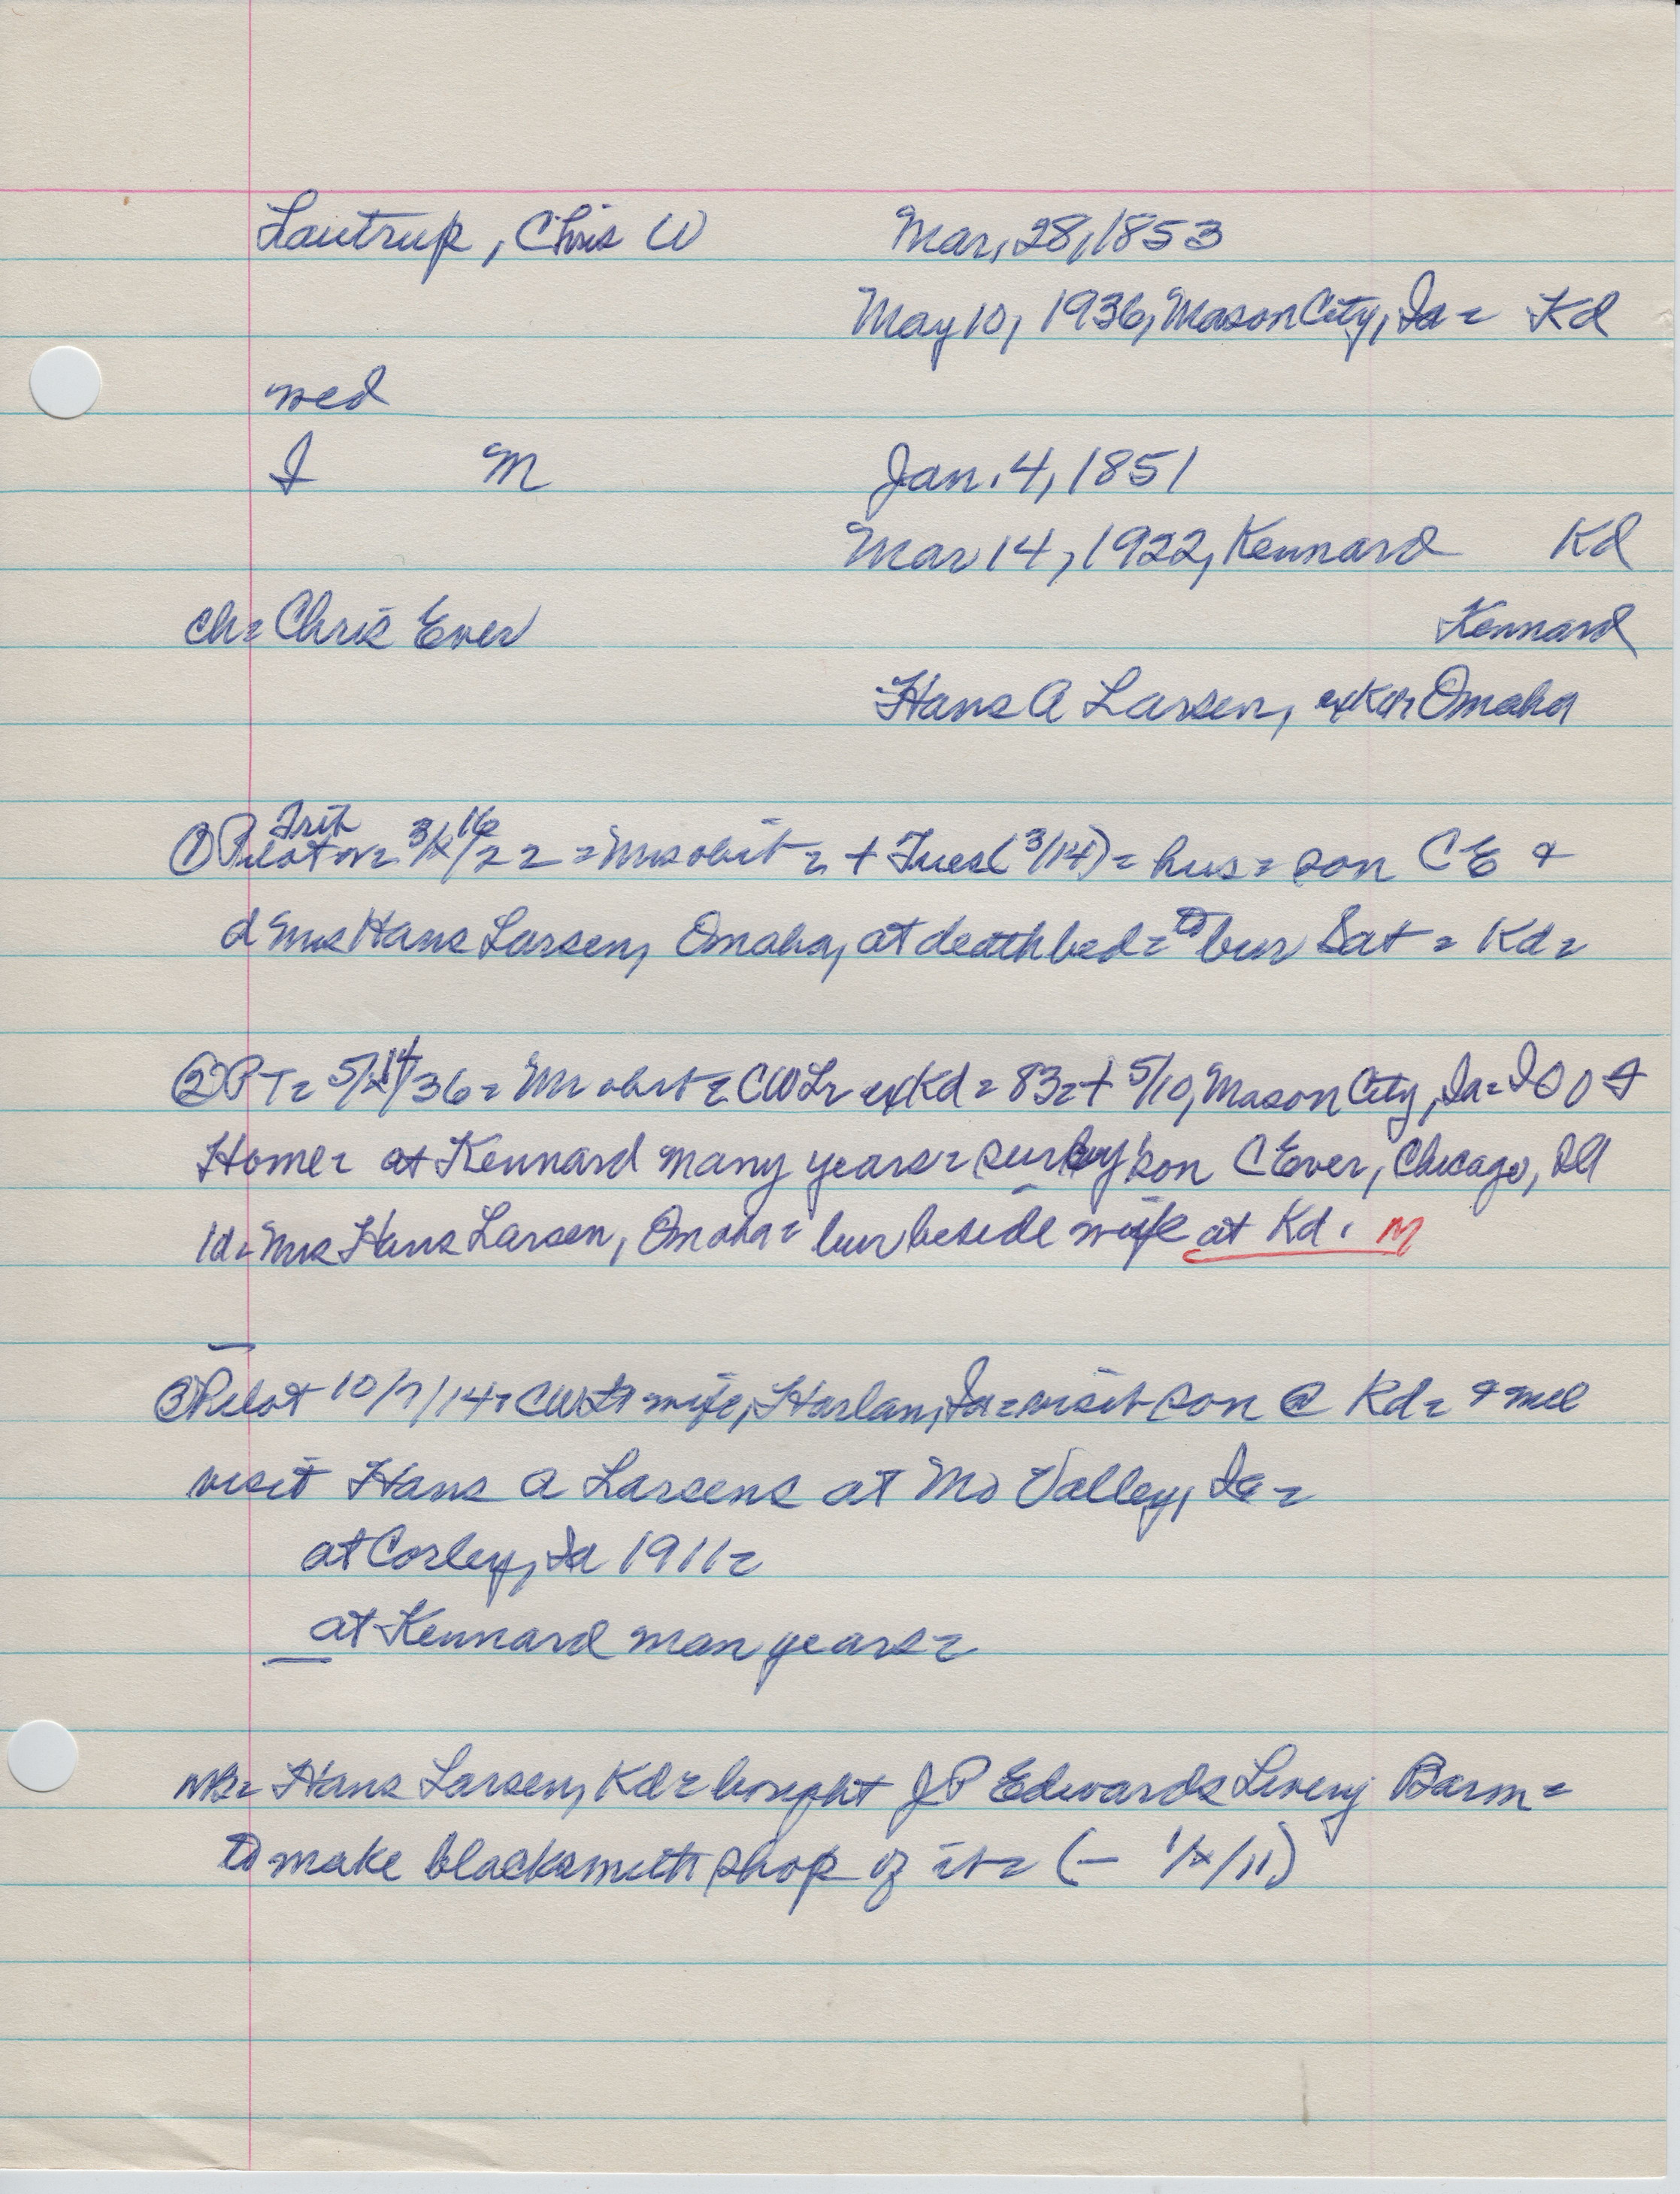 Lautrup, Chris W Mar, 28, 1853
May 10, 1936, Mason City, Ia = Kd
wed
I M Jan. 4, 1851
Mar 14, 1922, Kennard Kd
ch= Chris Ever Kennard
Hans A Larsen, exKd= Omaha
Trib
① Pilot 3/16/22 = Mrs obit = + Tues (3/14) = hus = son CE &
d Mrs Hans Larsen, Omaha, at deathbed = to bur Sat = Kd =
② PT= 5/14/36 = Mr obit = CWLr exKd = 83 = + 5/10, Mason City, Ia = IOOF
Home = at Kennard many years = sur by son C Ever, Chicago, Ill
1d = Mrs Hans Larsen, Omaha = bur beside wife at Kd. M
③ Pilot 10/7/14 = CW wife, Harlan, Ia = visit son @ Kd = & will
visit Hans A Larsens at Mo Valley, Ia =
at Corley, Ia 1911 =
at Kennard man years =
Hans Larsen, Kd = bought JP Edwards Livery Barm =
to make blacksmith shop of it = (- 1/x/11)